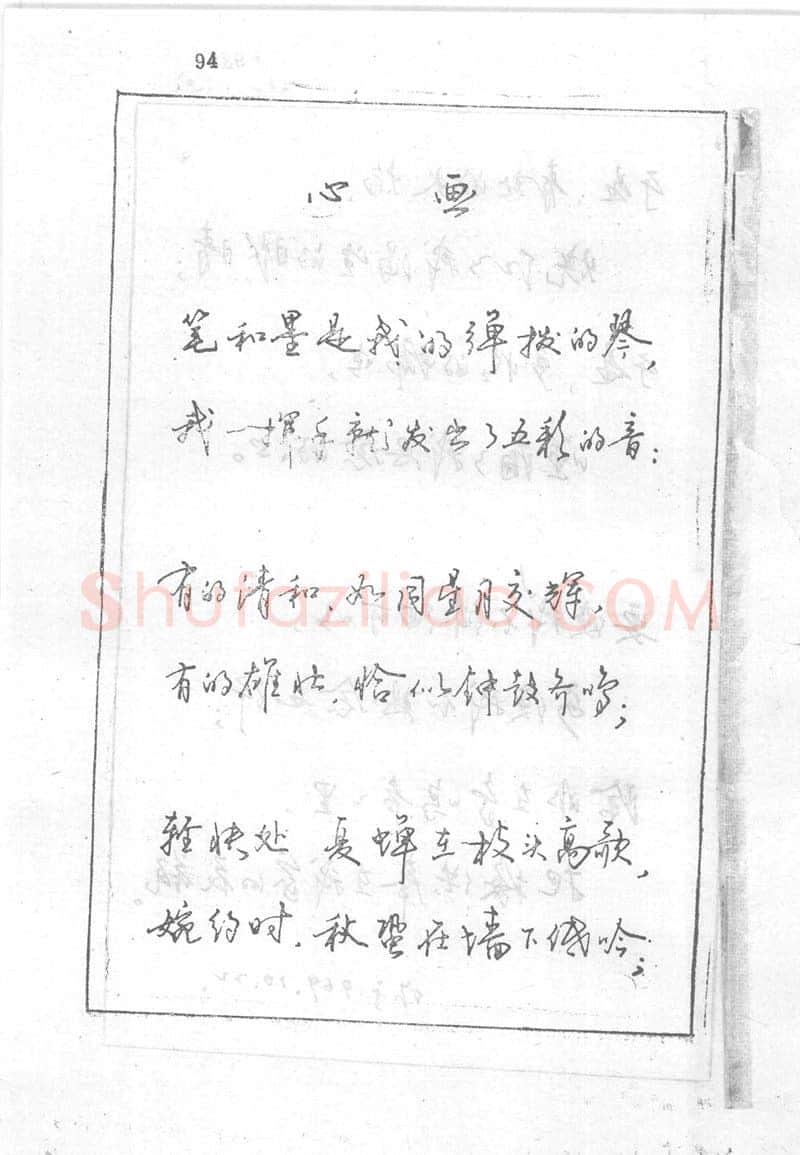 94
心画
笔和墨是我的弹拨的琴，
我一挥手就发出了五彩的音：
有的清和，如同星月交辉，
有的雄壮，恰似钟鼓齐鸣；
轻快处 夏蝉在枝头高歌，
婉约时，秋蛩在墙下低吟；
Shufaziliao.COM